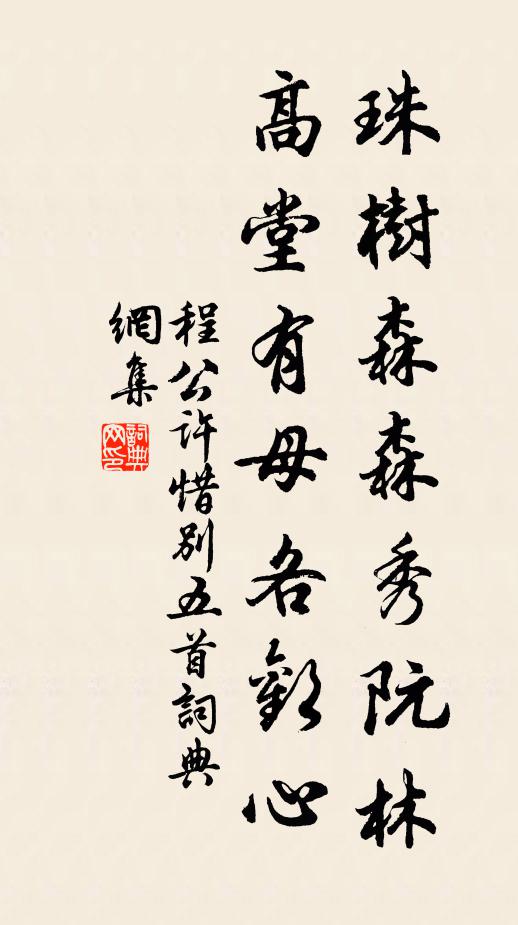 珠樹森森秀阮林
高堂有母各歡心
程公許惜別五首詞典
網集
詞典网印